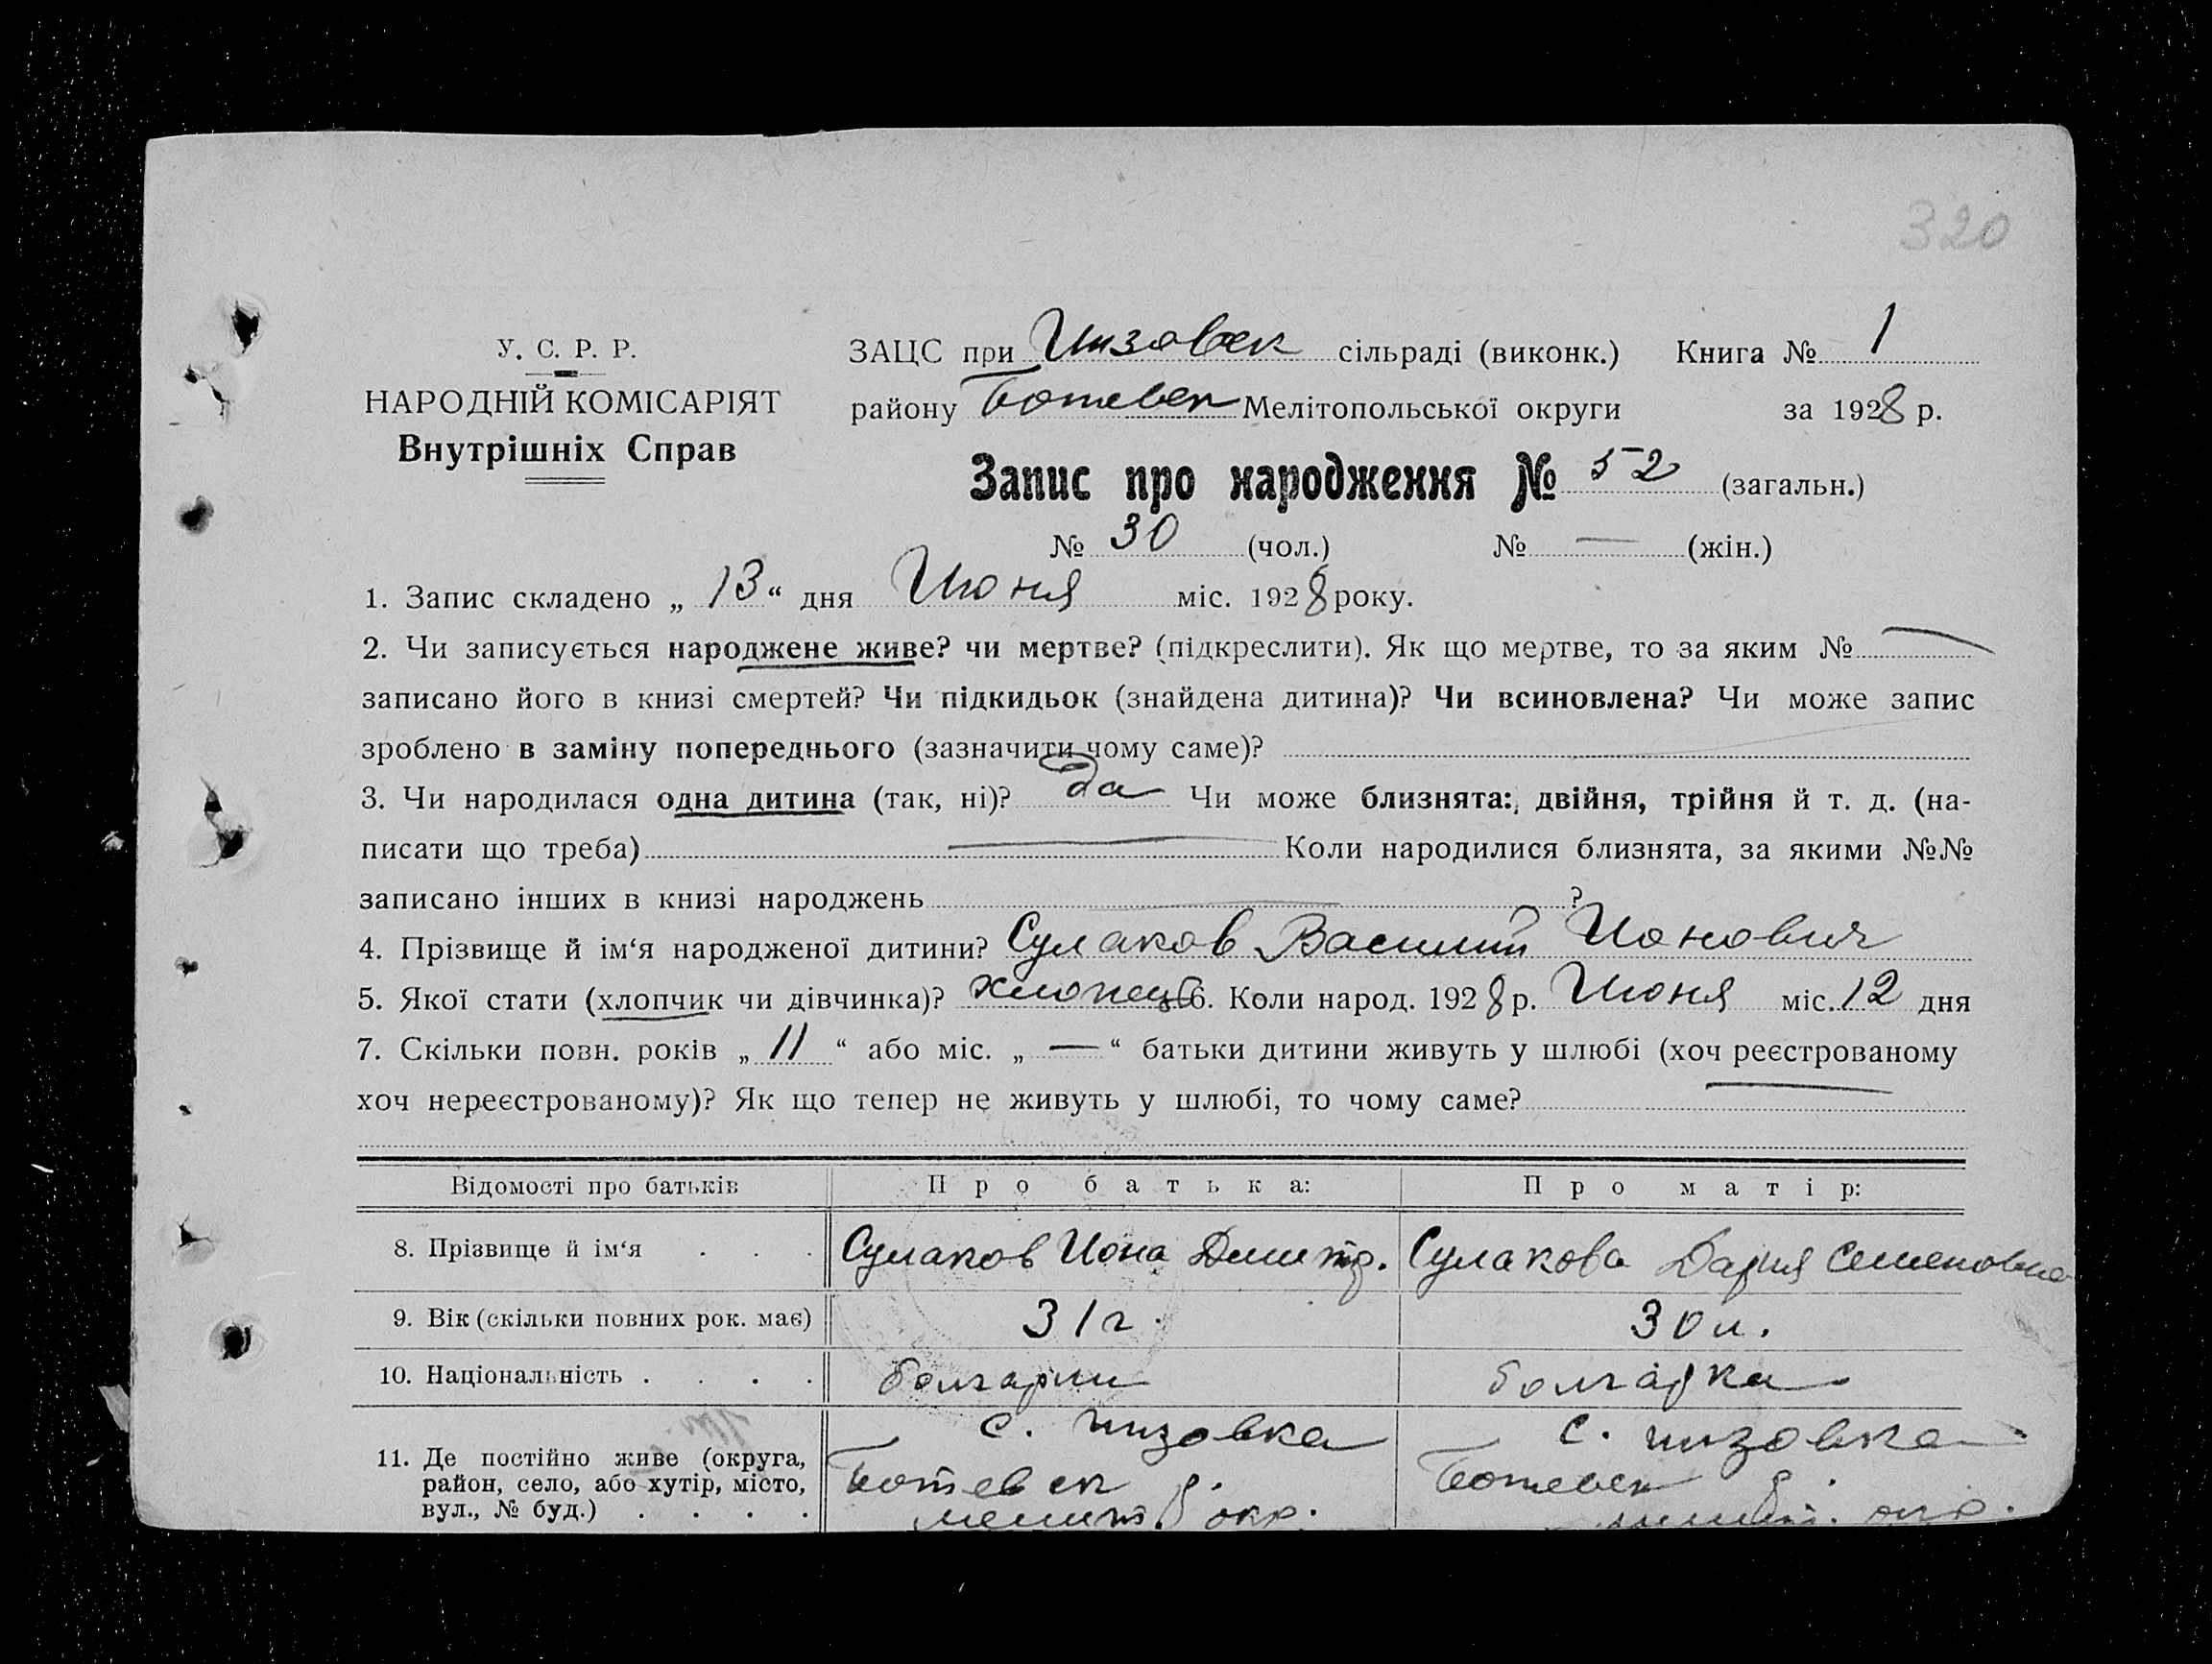 320
У. С. Р. Р.
НАРОДНІЙ КОМІСАРІЯТ
Внутрішніх Справ
ЗАЦС при Инзовск сільраді (виконк.) Книга № 1
району Ботевск Мелітопольської округи за 1928 р.
Запис про народження № 52 (загальн.)
№ 30 (чол.) № — (жін.)
1. Запис складено „ 13 “ дня Июня міс. 1928 року.
2. Чи записується народжене живе? чи мертве? (підкреслити). Як що мертве, то за яким № —
записано його в книзі смертей? Чи підкидьок (знайдена дитина)? Чи всиновлена? Чи може запис
зроблено в заміну попереднього (зазначити чому саме)?
3. Чи народилася одна дитина (так, ні)? да Чи може близнята: двійня, трійня й т. д. (на-
писати що треба) — Коли народилися близнята, за якими №№
записано інших в книзі народжень — ?
4. Прізвище й ім‘я народженої дитини? Сулаков Василий Ионович
5. Якої стати (хлопчик чи дівчинка)? хлопець 6. Коли народ. 1928 р. Июня міс. 12 дня
7. Скільки повн. років „ 11 “ або міс. „ — “ батьки дитини живуть у шлюбі (хоч реєстрованому
хоч нереєстрованому)? Як що тепер не живуть у шлюбі, то чому саме? —
Відомості про батьків Про батька: Про матір:
8. Прізвище й ім‘я . . . Сулаков Иона Дмитр. Сулакова Дария Семеновна
9. Вік (скільки повних рок. має) 31 г. 30 л.
10. Національність . . . . болгарин болгарка
11. Де постійно живе (округа, район, село, або хутір, місто, вул., № буд.) . . . . с. инзовка Ботевск р. мелит. окр. с. инзовка Ботевск р. мелит. окр.